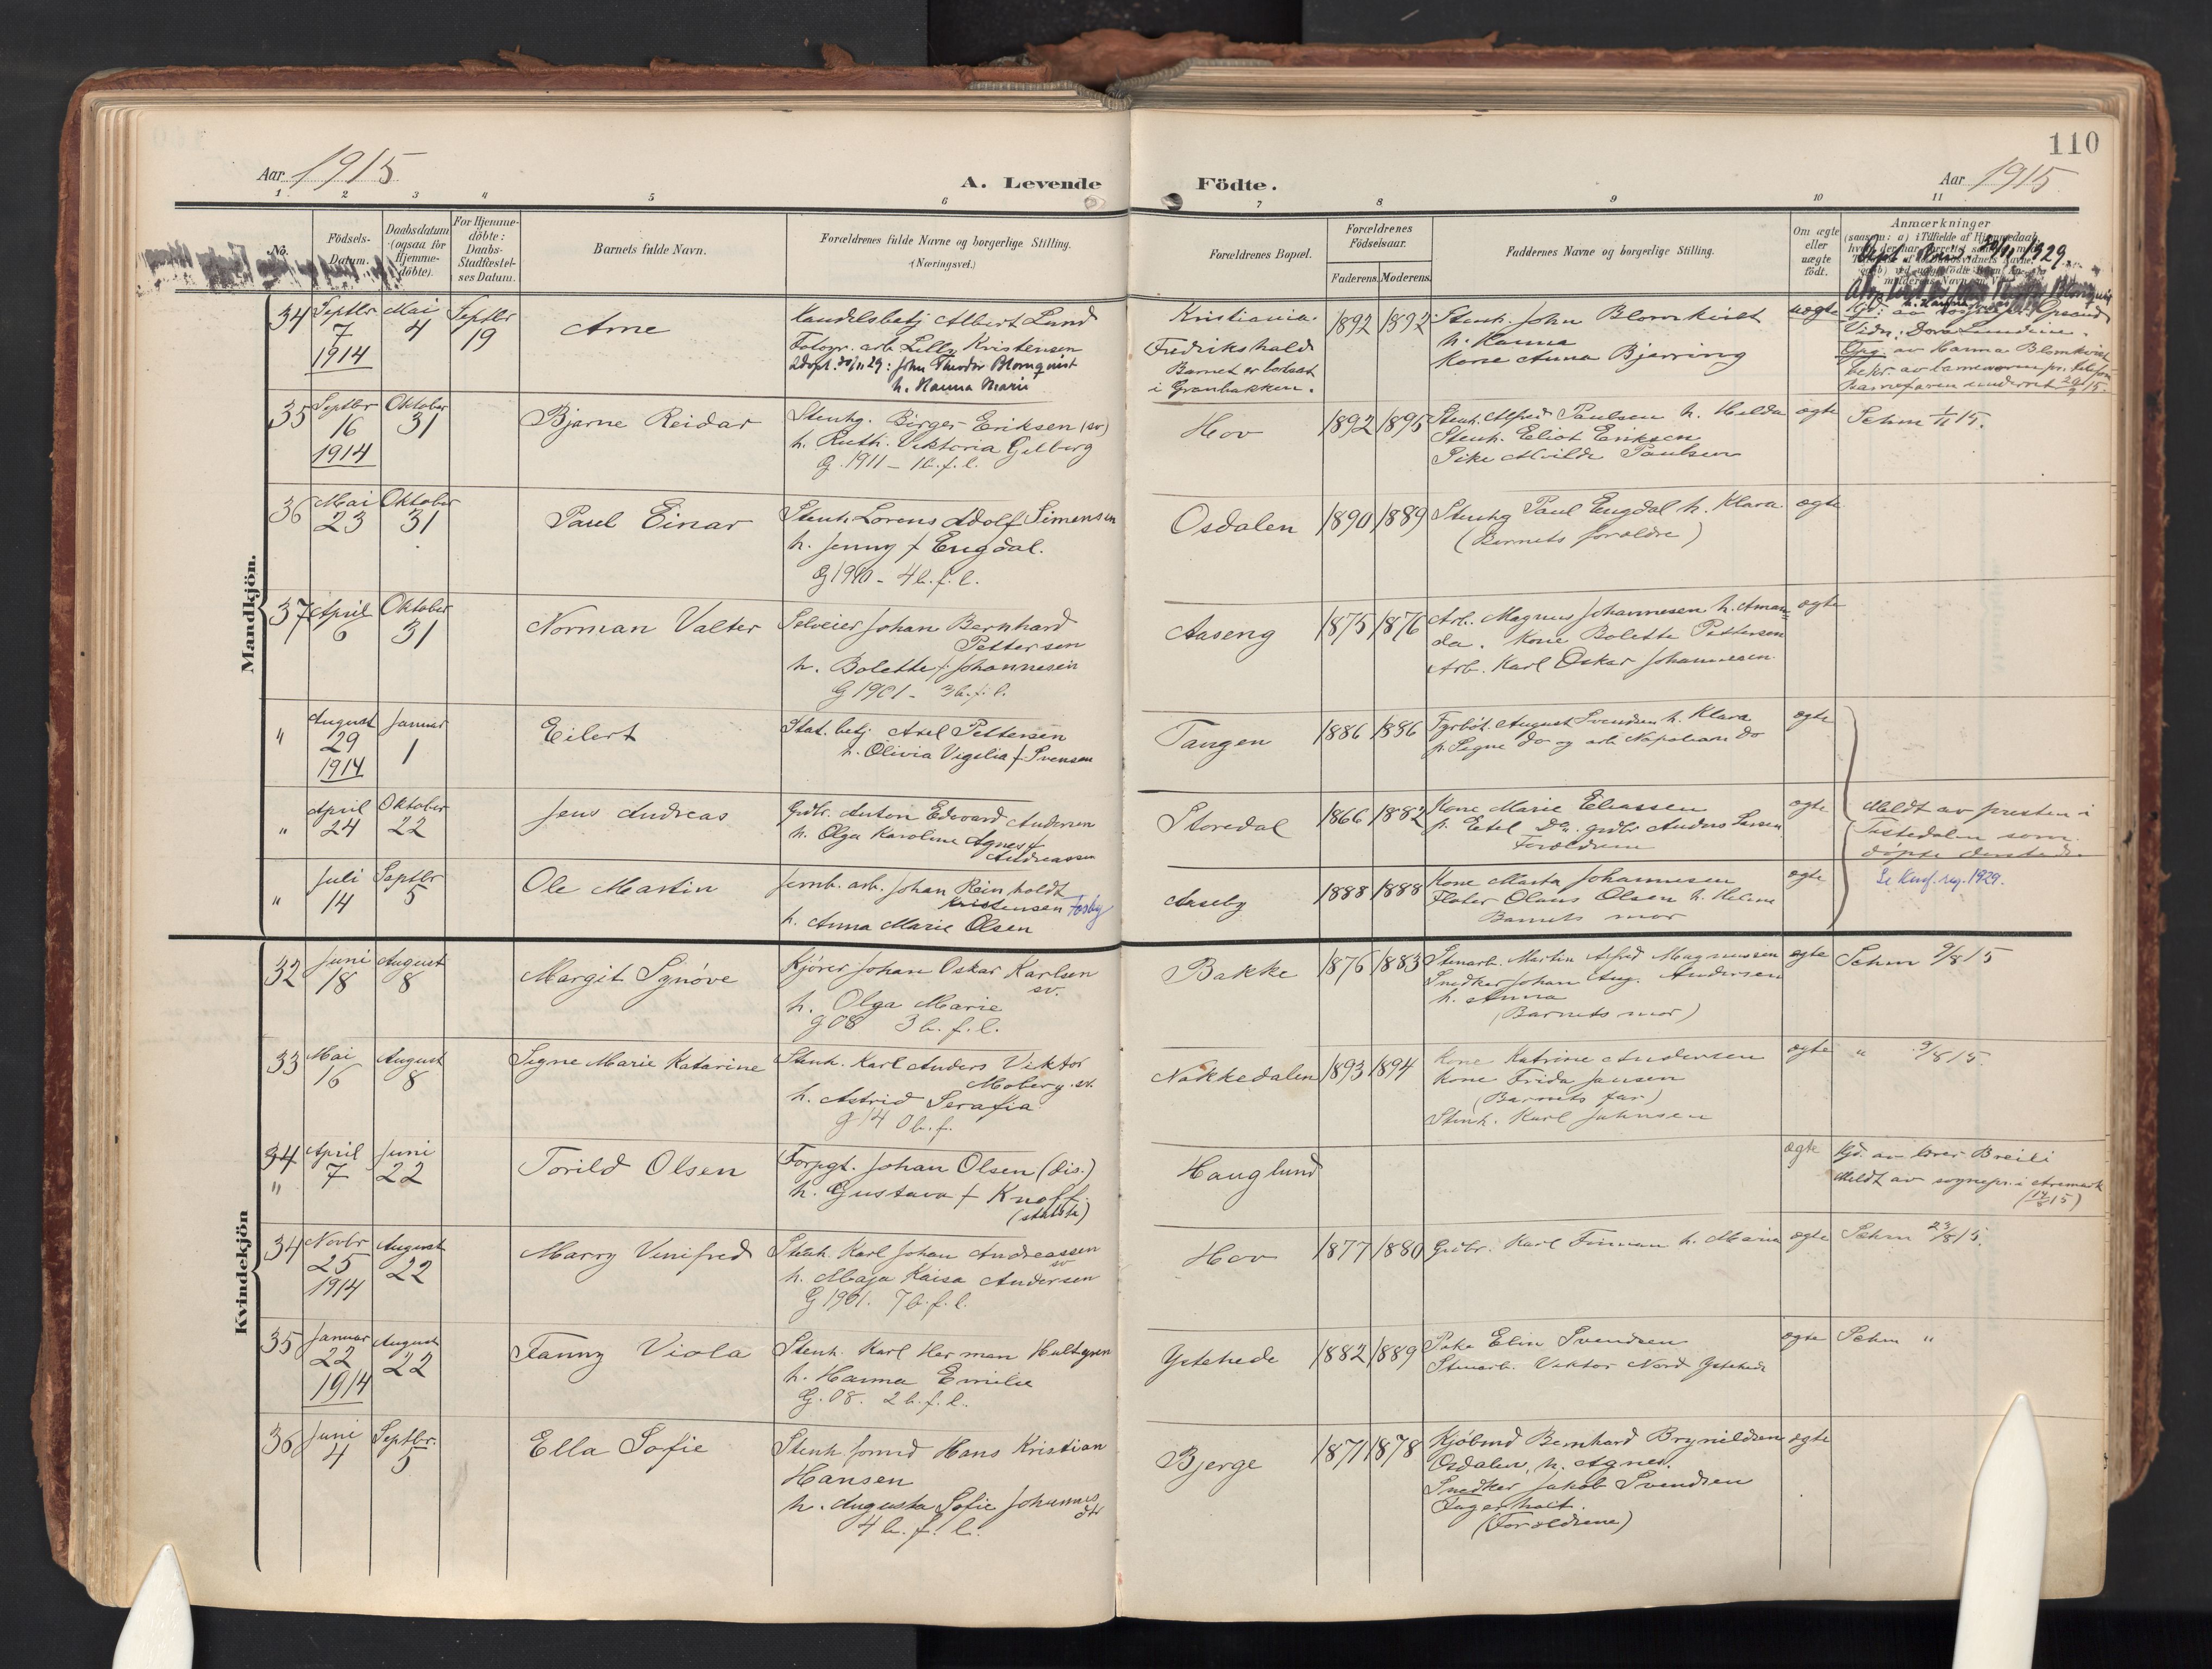 110
Aar 1915
A. Levende Födte.
Aar 1915
1 2 3 4 5 6 7 8 9 10 11
No.
Födsels-Datum.
Daabsdatum (ogsaa for Hjemme-döbte).
For Hjemme-döbte: Daabs-Stadfæstel-ses Datum.
Barnets fulde Navn.
Forældrenes fulde Navne og borgerlige Stilling.
(Næringsvei.)
Forældrenes Bopæl.
Forældrenes Födselsaar.
Faderens. Moderens.
Faddernes Navne og borgerlige Stilling.
Om ægte eller uægte födt.
Anmærkninger
Mandkjön.
34 Septbr 7 1914 Mai 4 Septbr 19
Arne
Handelsbetj Albert Lund
Fotogr. arb Lilly Kristensen
adopt. 30/11 29: John Theodor Blomquist
h. Hanna Marie
Kristiania.
Fredrikshald
Barnet er bortsat
i Granbakken.
1892 1892
Stenh. John Blomkvist
h. Hanna
Kone Anna Bjerring
uægte
Vidn: Dora Lundeim
av Hanna Blomkvist
35 Septbr 16 1914 Oktober 31
Bjarne Reidar
Stenhg. Birger Eriksen (sv)
h. Ruth. Viktoria Gelberg
G. 1911 – 1b. f. l.
Hov
1892 1895
Stenh. Alfred Paulsen h. Hilda
Stenh. Eliot Eriksen
Pike Alvilde Paulsen
ægte
Schm 1/11 15.
36 Mai 23 Oktober 31
Paul Einar
Stenh. Lorens Adolf Simensen
h. Jenny f Engdal.
G 1910 – 4 b. f. l.
Osdalen
1890 1889
Stenhg Paul Engdal h. Klara
(Barnets forældre)
ægte
37 April 6 Oktober 31
Norman Valter
Selveier Johan Bernhard
Pettersen
h. Bolette f. Johannesen
G 1901 – 3 b. f. l.
Aaseng
1875 1876
Arb. Magnus Johannesen h. Aman=
da. Kone Bolette Pettersen
Arb. Karl Oskar Johannesen
ægte
" August 29 1914 Januar 1
Eilert
Stat. betj Axel Pettersen
h. Olivia Vigelia f Svensen
Tangen
1886 1886
Fyrböt. August Svendsen h. Klara
p. Signe do og arb Napoleon do
ægte
" April 24 Oktober 22
Jens Andreas
Grdbr. Anton Edevard Andersen
h. Olga Karoline Agnes f
Andreassen
Storedal
1866 1882
Kone Marie Eliassen
p. Estel Do. grdbr Anders Larsen
Forældrene
ægte
Meldt av presten i
Tistedalen som
döpte derstede.
" Juli 14 Septbr 5
Ole Martin
Jernb. arb. Johan Reinholdt
Kristensen Fosby
h. Anna Marie Olsen
Aaseby
1888 1888
Kone Marta Johannesen
Flöter Olaus Olsen h. Helene
Barnets mor
ægte
Se Konf. reg. 1929.
Kvindekjön
32 Juni 18 August 8
Margit Synöve
Kjörer Johan Oskar Karlsen
sv.
h. Olga Marie
g 08 3 b. f. l.
Bakke
1876 1883
Stenarb. Martin Alfred Magnussen
Snedker Johan Aug. Andersen
h. Anna
(Barnets mor)
ægte
Schm 9/8 15
33 Mai 16 August 8
Signe Marie Katarine
Stenh. Karl Anders Viktor
Moberg. sv.
h. Astrid Serafia
g 14 0 b. f.
Nakkedalen
1893 1894
Kone Katrine Andersen
Kone Frida Jansen
(Barnets far)
Stenh. Karl Johnsen
ægte
" 9/8 15.
34 " April 7 Juni 22
Torild Olsen
Forpgt. Johan Olsen (dis.)
h. Gustava f Knoff.
(statsk)
Hauglund
ægte
Hjd. av lærer Breili
Meldt av sognepr. i Aremark
34 Novbr 25 1914 August 22
Marry Vinifred
Stenh. Karl Johan Andreassen
sv
h. Maja Kaisa Andersen
G 1901. 7 b. f. l.
Hov
1877 1880
Grdbr. Karl Finman h. Maria
ægte
Schm 23/8 15.
35 Januar 22 1914 August 22
Fanny Viola
Stenh. Karl Herman Hultgren
h. Hanna Emilie
G. 08. 2 b. f. l.
Ystehede
1882 1889
Pike Elin Svendsen
Stenarb. Viktor Nord Ystehede
ægte
Schm "
36 Juni 4 Septbr. 5
Ella Sofie
Stenh. formd Hans Kristian
Hansen
h. Augusta Sofie Johannes
dtr
4 b. f. l.
Bjerge
1871 1878
Kjöbmd Bernhard Brynildsen
Osdalen, h. Agnes.
Snedker Jakob Svendsen
Fagerholt.
(Forældrene)
ægte